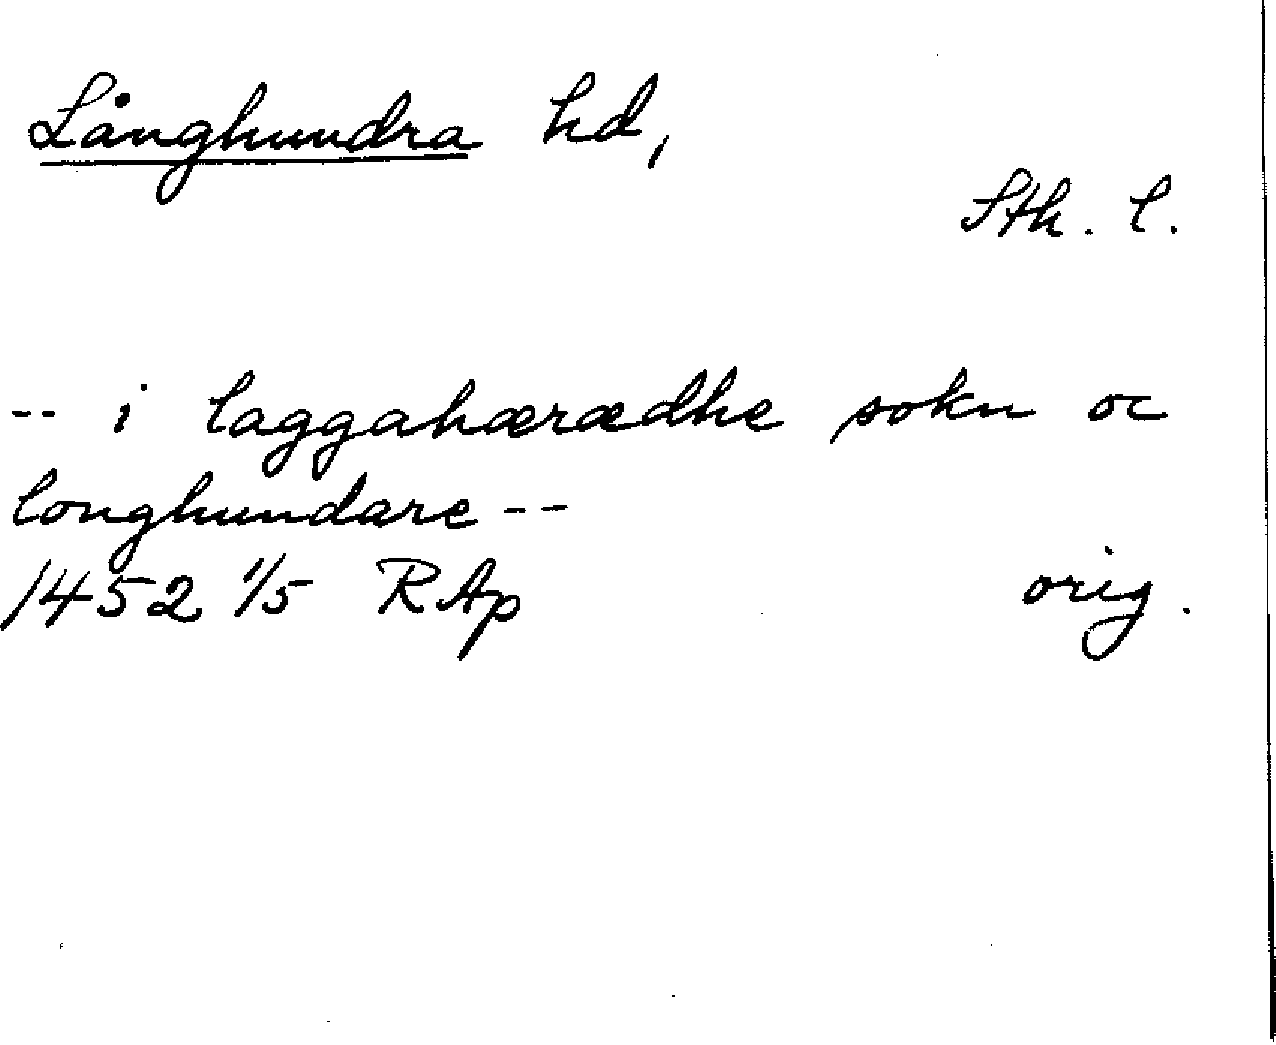 Långhundra hd,
Sth. l.
-- i laggahærædhe sokn oc
longhundare --
1452 1/5 RAp orig.